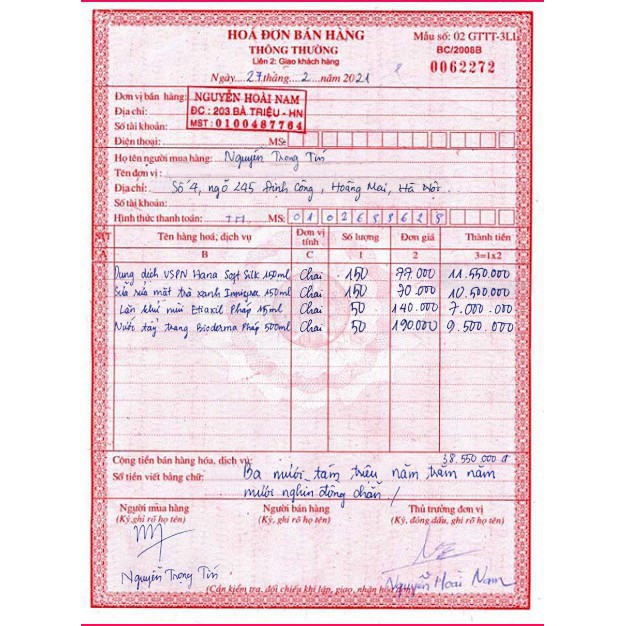 HOÁ ĐƠN BÁN HÀNG
THÔNG THƯỜNG
Liên 2: Giao khách hàng
Mẫu số: 02 GTTT-3LL
BC/2008B
0062272
Ngày 27 tháng 2 năm 2021
Đơn vị bán hàng: NGUYỄN HOÀI NAM
Địa chỉ: ĐC : 203 BÀ TRIỆU - HN
Số tài khoản: MST : 0100487764
Điện thoại: MS:
Họ tên người mua hàng: Nguyễn Trọng Tín
Tên đơn vị:
Địa chỉ: Số 4, ngõ 245 Định Công, Hoàng Mai, Hà Nội
Số tài khoản:
Hình thức thanh toán: TM. MS:
STT Tên hàng hoá, dịch vụ Đơn vị tính Số lượng Đơn giá Thành tiền
A B C 1 2 3=1x2
Dung dịch VSPN Hana Soft Silk 150ml Chai 150 77.000 11.550.000
Sữa rửa mặt trà xanh 150ml Chai 150 70.000 10.500.000
Lăn khử mùi Etiaxil Pháp 15ml Chai 50 140.000 7.000.000
Nước tẩy trang Bioderma Pháp 500ml Chai 50 190.000 9.500.000
Cộng tiền bán hàng hóa, dịch vụ: 38.550.000 đ
Số tiền viết bằng chữ: Ba mươi tám triệu năm trăm năm
mươi nghìn đồng chẵn /
Người mua hàng Người bán hàng Thủ trưởng đơn vị
(Ký, ghi rõ họ tên) (Ký, ghi rõ họ tên) (Ký, đóng dấu, ghi rõ họ tên)
Nguyễn Trọng Tín Nguyễn Hoài Nam
(Cần kiểm tra, đối chiếu khi lập, giao, nhận hoá đơn)